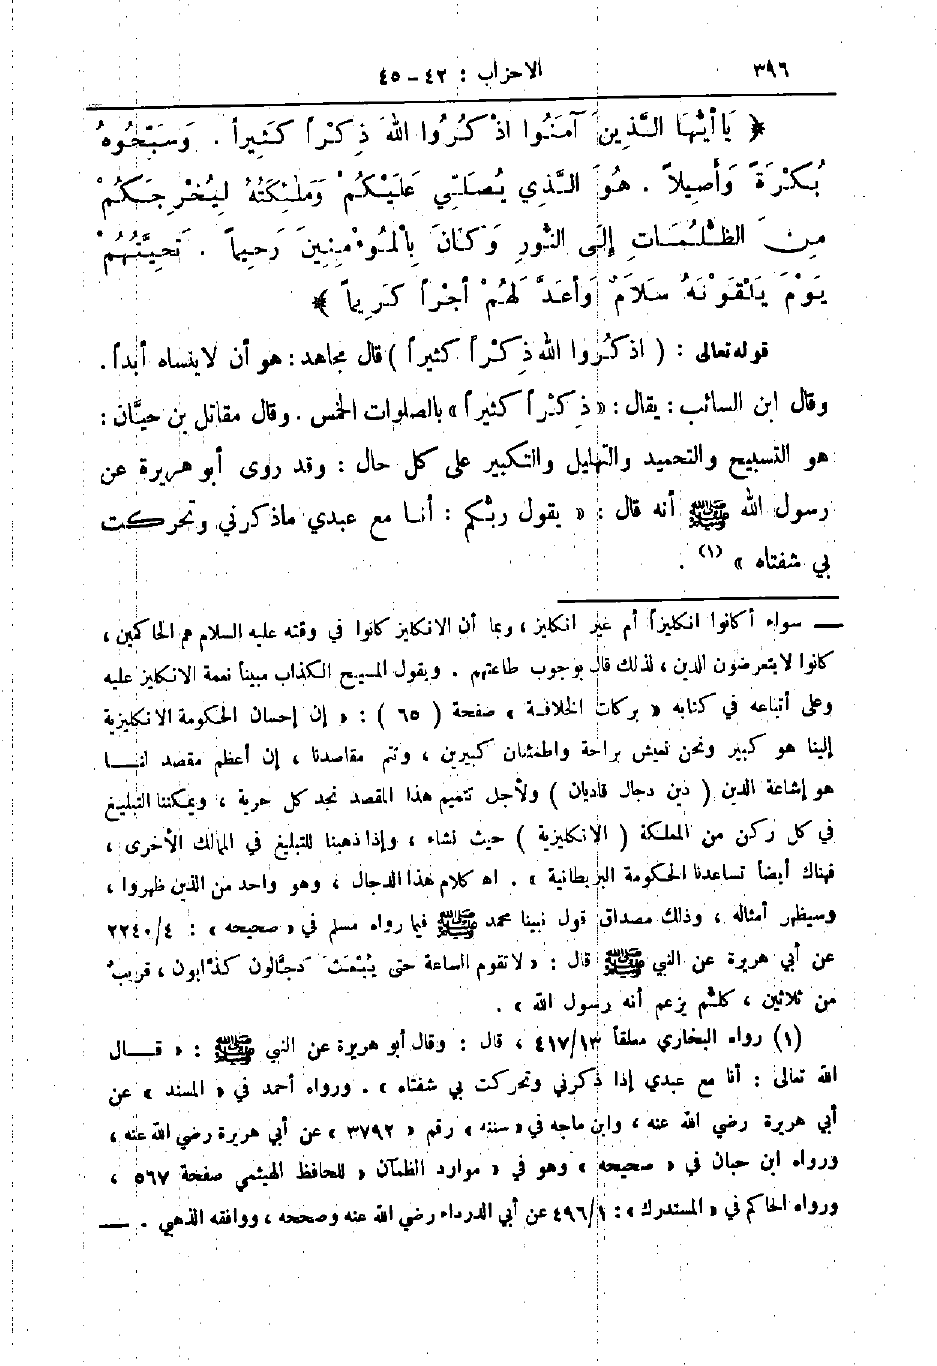 ٣٩٦
الاحزاب : ٤٢ – ٤٥
﴿ يَا أَيُّهَا الَّذِينَ آمَنُوا اذْكُرُوا اللهَ ذِكْراً كَثِيراً . وَسَبِّحُوهُ
بُكْرَةً وَأَصِيلاً . هُوَ الَّذِي يُصَلِّي عَلَيْكُمْ وَمَلٰئِكَتُهُ لِيُخْرِجَكُمْ
مِنَ الظُّلُمَاتِ إِلَى النُّورِ وَكَانَ بِالْمُؤْمِنِينَ رَحِيماً . تَحِيَّتُهُمْ
يَوْمَ يَلْقَوْنَهُ سَلَامٌ وَأَعَدَّ لَهُمْ أَجْراً كَرِيماً ﴾
قوله تعالى : ( اذكُروا الله ذِكْراً كثيراً ) قال مجاهد : هو أن لا ينساه أبداً .
وقال ابن السائب : يقال : « ذِكْراً كثيراً » بالصلوات الخمس . وقال مقاتل بن حيَّان :
هو التسبيح والتحميد والتهليل والتكبير على كل حال : وقد روى أبو هريرة عن
رسول الله ﷺ أنه قال : « يقول ربُّكم : أنا مع عبدي ماذكرني وتحركت
بي شفتاه » (١) .
— سواء أكانوا انكليزاً أم غير انكليز ، وبما أن الانكليز كانوا في وقته عليه السلام هم الحاكمين ،
كانوا لا يتعرضون الدين ، لذلك قال بوجوب طاعتهم . ويقول المسيح الكذاب مبيناً نعمة الانكليز عليه
وعلى أتباعه في كتابه « بركات الخلافة » صفحة ( ٦٥ ) : « إن إحسان الحكومة الانكليزية
إلينا هو كبير ونحن نعيش براحة واطمئنان كبيرين ، وتتم مقاصدنا ، إن أعظم مقصد لنا
هو إشاعة الدين ( دين دجال قاديان ) ولأجل تتميم هذا المقصد نجد كل حرية ، ويمكننا التبليغ
في كل ركن من المملكة ( الانكليزية ) حيث نشاء ، وإذا ذهبنا للتبليغ في الممالك الأخرى ،
فهناك أيضاً تساعدنا الحكومة البريطانية » . اه كلام هذا الدجال ، وهو واحد من الذين ظهروا ،
وسيظهر أمثاله ، وذلك مصداق قول نبينا محمد ﷺ فيما رواه مسلم في « صحيحه » : ٢٢٤٠/٤
عن أبي هريرة عن النبي ﷺ قال : « لا تقوم الساعة حتى يُبْعَثَ دَجَّالون كذَّابون ، قريبٌ
من ثلاثين ، كلُّهم يزعم أنه رسول الله » .
(١) رواه البخاري معلقاً ٤١٧/١٣ ، قال : وقال أبو هريرة عن النبي ﷺ : « قال
الله تعالى : أنا مع عبدي إذا ذكرني وتحركت بي شفتاه » . ورواه أحمد في « المسند » عن
أبي هريرة رضي الله عنه ، وابن ماجه في « سننه » رقم « ٣٧٩٢ » عن أبي هريرة رضي الله عنه ،
ورواه ابن حبان في « صحيحه » وهو في « موارد الظمآن » للحافظ الهيثمي صفحة ٥٦٧ ،
ورواه الحاكم في « المستدرك » : ٤٩٦/١ عن أبي الدرداء رضي الله عنه وصححه ، ووافقه الذهبي . —